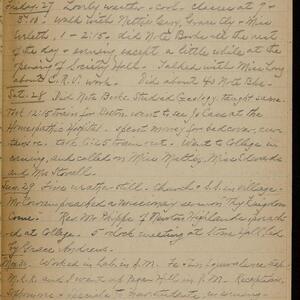 Friday. 27 Lovely weather - cool - classes at 9 +
3:10 walk with Nettie Gray, Grace ity + Miss
1 - 2:15 + did Note Books all the rest
of the day + evening except a little while at the
opening of Society Hall - Talked with Miss Long
about C.R.V. work. Did about 40 Note Bks.
Sat. 28 Did Note Books. Studied Geology, taught same.
Took 12:15 train for Boston, went to see Jo Cass at the
Homeopathic Hospital - spent money for bedcover, cur-
tains etc. took 5:25 train out. Went to College in
evening, and called on Miss Maltby, Miss Edwards
and Mrs Stovell.
Sun. 29 Fine weather still - church + S.S. in village.
Mr preached a missionary sermon Thy Kingdom
Come. Rev. Mr Phipps of Newton Highlands preach
ed at College. 5 o'clock meeting at Stone Hall led
by Grace Andrews.
Mon. 30 Worked in Lab in A.M.
and I went up Pegan Hill in P.M. Reception
to new students in evening